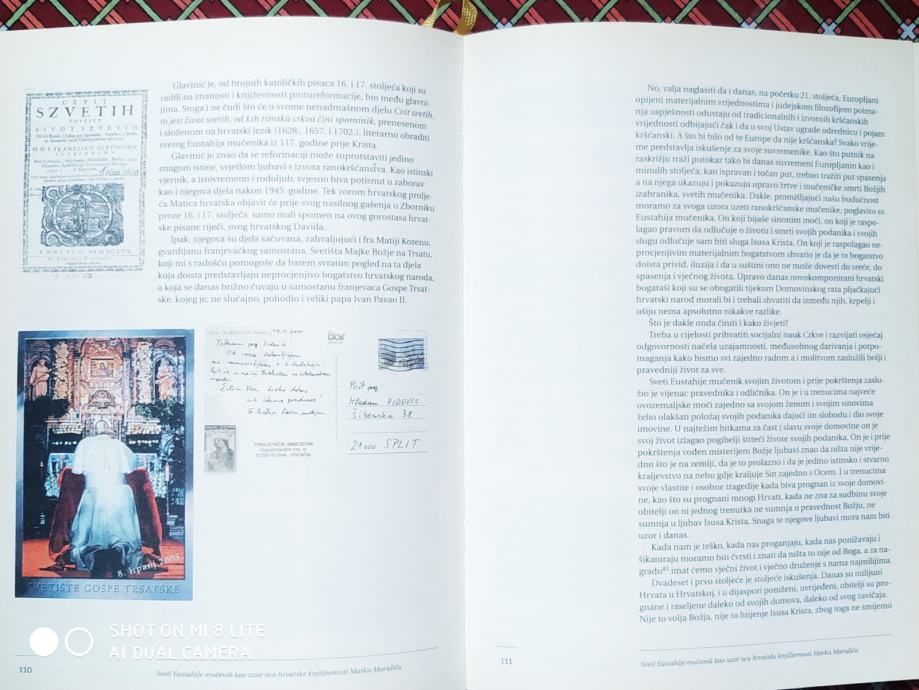 CZVIT
SZVETIH
Glavinić je, od brojnih katoličkih pisaca 16. i 17. stoljeća koji su
radili na znanosti i književnosti protureformacije, bio među glavni-
jima. Stoga i ne čudi što će u svome nenadmašnom djelu Cvit svetih,
to jest život svetih, od kih rimska crkva čini spominik, prenesenom
i složenom na hrvatski jezik (1628., 1657. i 1702.), literarno obraditi
svetog Eustahija mučenika iz 117. godine prije Krista.
Glavinić je znao da se reformaciji može suprotstaviti jedino
snagom istine, svjetlom ljubavi s izvora ranokršćanstva. Kao istinski
vjernik, a istovremeno i rodoljub, svjesno biva potisnut u zaborav
kao i njegova djela nakon 1945. godine. Tek zorom hrvatskog prolje-
ća Matica hrvatska objavit će prije svog nasilnog gašenja u Zborniku
proze 16. i 17. stoljeća samo mali spomen na ovog gorostasa hrvat-
ske pisane riječi, ovog hrvatskog Davida.
Ipak, njegova su djela sačuvana, zahvaljujući i fra Matiji Korenu,
gvardijanu franjevačkog samostana, Svetišta Majke Božje na Trsatu,
koji mi s radošću pomogoše da barem svratim pogled na ta djela
koja doista predstavljaju neprocjenjivo bogatstvo hrvatskog naroda,
a koja se danas brižno čuvaju u samostanu franjevaca Gospe Trsat-
ske, kojeg je, ne slučajno, pohodio i veliki papa Ivan Pavao II.
8. lipanj 2003.
SVETIŠTE GOSPE TRSATSKE
Hladan VIDOVIĆ
Šibenska 38
21000 SPLIT
FRANJEVAČKI SAMOSTAN
SHOT ON MI 8 LITE
AI DUAL CAMERA
110
Sveti Eustahije mučenik kao uzor ocu hrvatske književnosti Marku Maruliću
No, valja naglasiti da i danas, na početku 21. stoljeća, Europljani
opijeni materijalnim vrijednostima i judejskom filozofijom poima-
nja uspješnosti odustaju od tradicionalnih i izvornih kršćanskih
vrijednosti odbijajući čak i da u svoj Ustav ugrade odrednicu i pojam
kršćanski. A što bi bilo od te Europe da nije kršćanska? Svako vrije-
me predstavlja iskušenje za svoje suvremenike. Kao što putnik na
raskrižju traži putokaz tako bi danas suvremeni Europljanin kao i
minulih stoljeća, kao ispravan i točan put, trebao tražiti put spasenja
a na njega ukazuju i pokazuju upravo žrtve i mučeničke smrti Božjih
izabranika, svetih mučenika. Dakle, promišljajući našu budućnost
moramo za svoga uzora uzeti ranokršćanske mučenike, poglavito sv.
Eustahija mučenika. On koji bijaše sinonim moći, on koji je raspo-
lagao pravom da odlučuje o životu i smrti svojih podanika i svojih
slugu odlučuje sam biti sluga Isusa Krista. On koji je raspolagao ne-
procjenjivim materijalnim bogatstvom shvatio je da je to bogatstvo
doista privid, iluzija i da u suštini ono ne može dovesti do sreće, do
spasenja i vječnog života. Upravo danas novokomponirani hrvatski
bogataši koji su se obogatili tijekom Domovinskog rata pljačkajući
hrvatski narod morali bi i trebali shvatiti da između njih, krpelji i
ušiju nema apsolutno nikakve razlike.
Što je dakle onda činiti i kako živjeti?
Treba u cijelosti prihvatiti socijalni nauk Crkve i razvijati osjećaj
odgovornosti načela uzajamnosti, međusobnog darivanja i potpo-
maganja kako bismo svi zajedno radom a i molitvom zaslužili bolji i
pravedniji život za sve.
Sveti Eustahije mučenik svojim životom i prije pokrštenja zaslu-
žio je vijenac pravednika i odličnika. On je i u trenucima najveće
ovozemaljske moći zajedno sa svojom ženom i svojim sinovima
želio olakšati položaj svojih podanika dajući im slobodu i dio svoje
imovine. U najtežim bitkama za čast i slavu svoje domovine on je
svoj život izlagao pogibelji štiteći živote svojih podanika. On je i prije
pokrštenja vođen misterijem Božje ljubavi znao da ništa nije vrije-
dno što je na zemlji, da je to prolazno i da je jedino istinsko i stvarno
kraljevstvo na nebu gdje kraljuje Sin zajedno s Ocem. I u trenucima
svoje vlastite i osobne tragedije kada biva prognan iz svoje domovi-
ne, kao što su prognani mnogi Hrvati, kada ne zna za sudbinu svoje
obitelji on ni jednog trenutka ne sumnja u pravednost Božju, ne
sumnja u ljubav Isusa Krista. Snaga te njegove ljubavi mora nam biti
uzor i danas.
Kada nam je teško, kada nas proganjaju, kada nas ponižavaju i
šikaniraju moramo biti čvrsti i znati da ništa to nije od Boga, a za na-
gradu imat ćemo vječni život i vječno druženje s nama najmilijima.
Dvadeset i prvo stoljeće je stoljeće iskušenja. Danas su milijuni
Hrvata u Hrvatskoj, i u dijaspori poniženi, uvrijeđeni, obitelji su pro-
gnane i raseljene daleko od svojih domova, daleko od svog zavičaja.
Nije to volja Božja, nije to htijenje Isusa Krista, zbog toga ne smijemo
111
Sveti Eustahije mučenik kao uzor ocu hrvatske književnosti Marku Maruliću